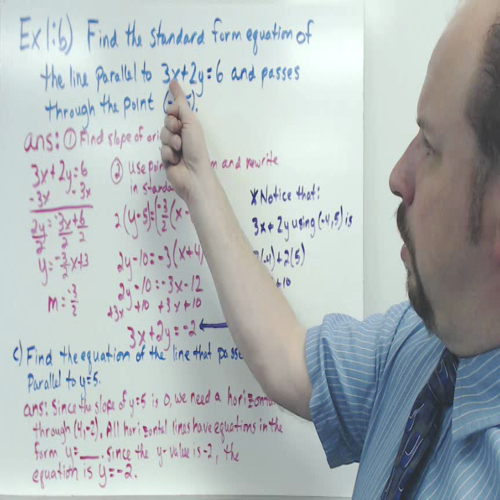 Ex 1:b) Find the standard form equation of
the line parallel to 3x+2y=6 and passes
through the point
ans: ① Find slope of
3x+2y=6
-3x -3x
2y = -3x+6
2 2 2
y=-3/2x+3
m = -3/2
② Use and rewrite
in
2(y-5)=(-3/2(x-
2y-10=-3(x+4)
2y-10=-3x-12
+3x +10 +3x+10
3x+2y=-2
* Notice that:
3x+2y using (-4,5) is
+2(5)
10
c) Find the equation of the line that
Parallel to y=5.
ans: Since the slope of y=5 is 0, we need a
through (4,-2). All horizontal lines have equations in the
form y=__. Since the y-value is -2, the
equation is y=-2.